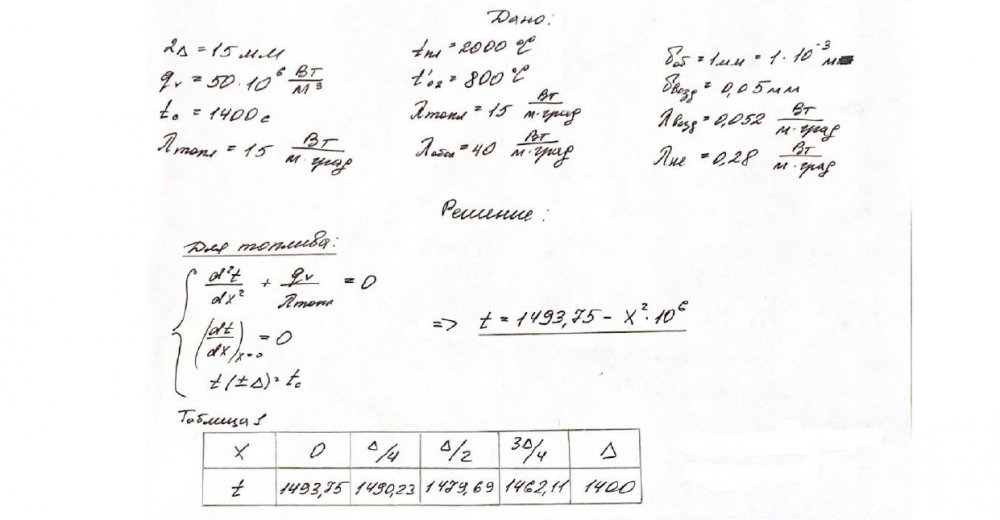 Дано:
2Δ = 15 мм
q_v = 50·10⁶ Вт/м³
t_c = 1400 c
λ_топл = 15 Вт/м·град
t_пл = 2000 °C
t'_об = 800 °C
λ_топл = 15 Вт/м·град
λ_обол = 40 Вт/м·град
δ_об = 1мм = 1·10⁻³ м
δ_возд = 0,05 мм
λ_возд = 0,052 Вт/м·град
λ_не = 0,28 Вт/м·град
Решение:
Для топлива:
d²t/dx² + q_v/λ_топл = 0
(dt/dx)_x=0 = 0
t(±Δ) = t_c
=> t = 1493,75 - x²·10⁶
Таблица 1
x 0 Δ/4 Δ/2 3Δ/4 Δ
t 1493,75 1490,23 1479,69 1462,11 1400